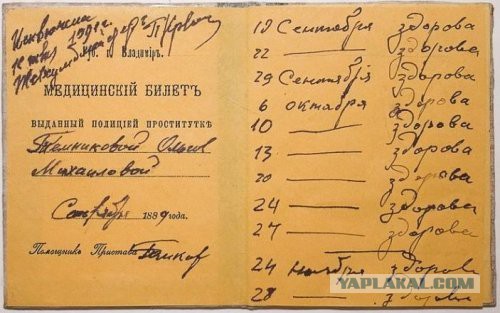 Гор. г. Владиміръ.
МЕДИЦИНСКІЙ БИЛЕТЪ
ВЫДАННЫЙ ПОЛИЦІЕЙ ПРОСТИТУТКѢ
Темниковой Ольгѣ
Михаиловой
Сентября 1889 года.
Помощникъ Пристава
19 Сентября здорова
22 — здорова
29 Сентября здорова
6 октября здорова
10 — здорова
13 — здорова
20 — здорова
24 — здорова
27 — здорова
24 Ноября здорова
28 — здорова
YAPLAKAL.COM